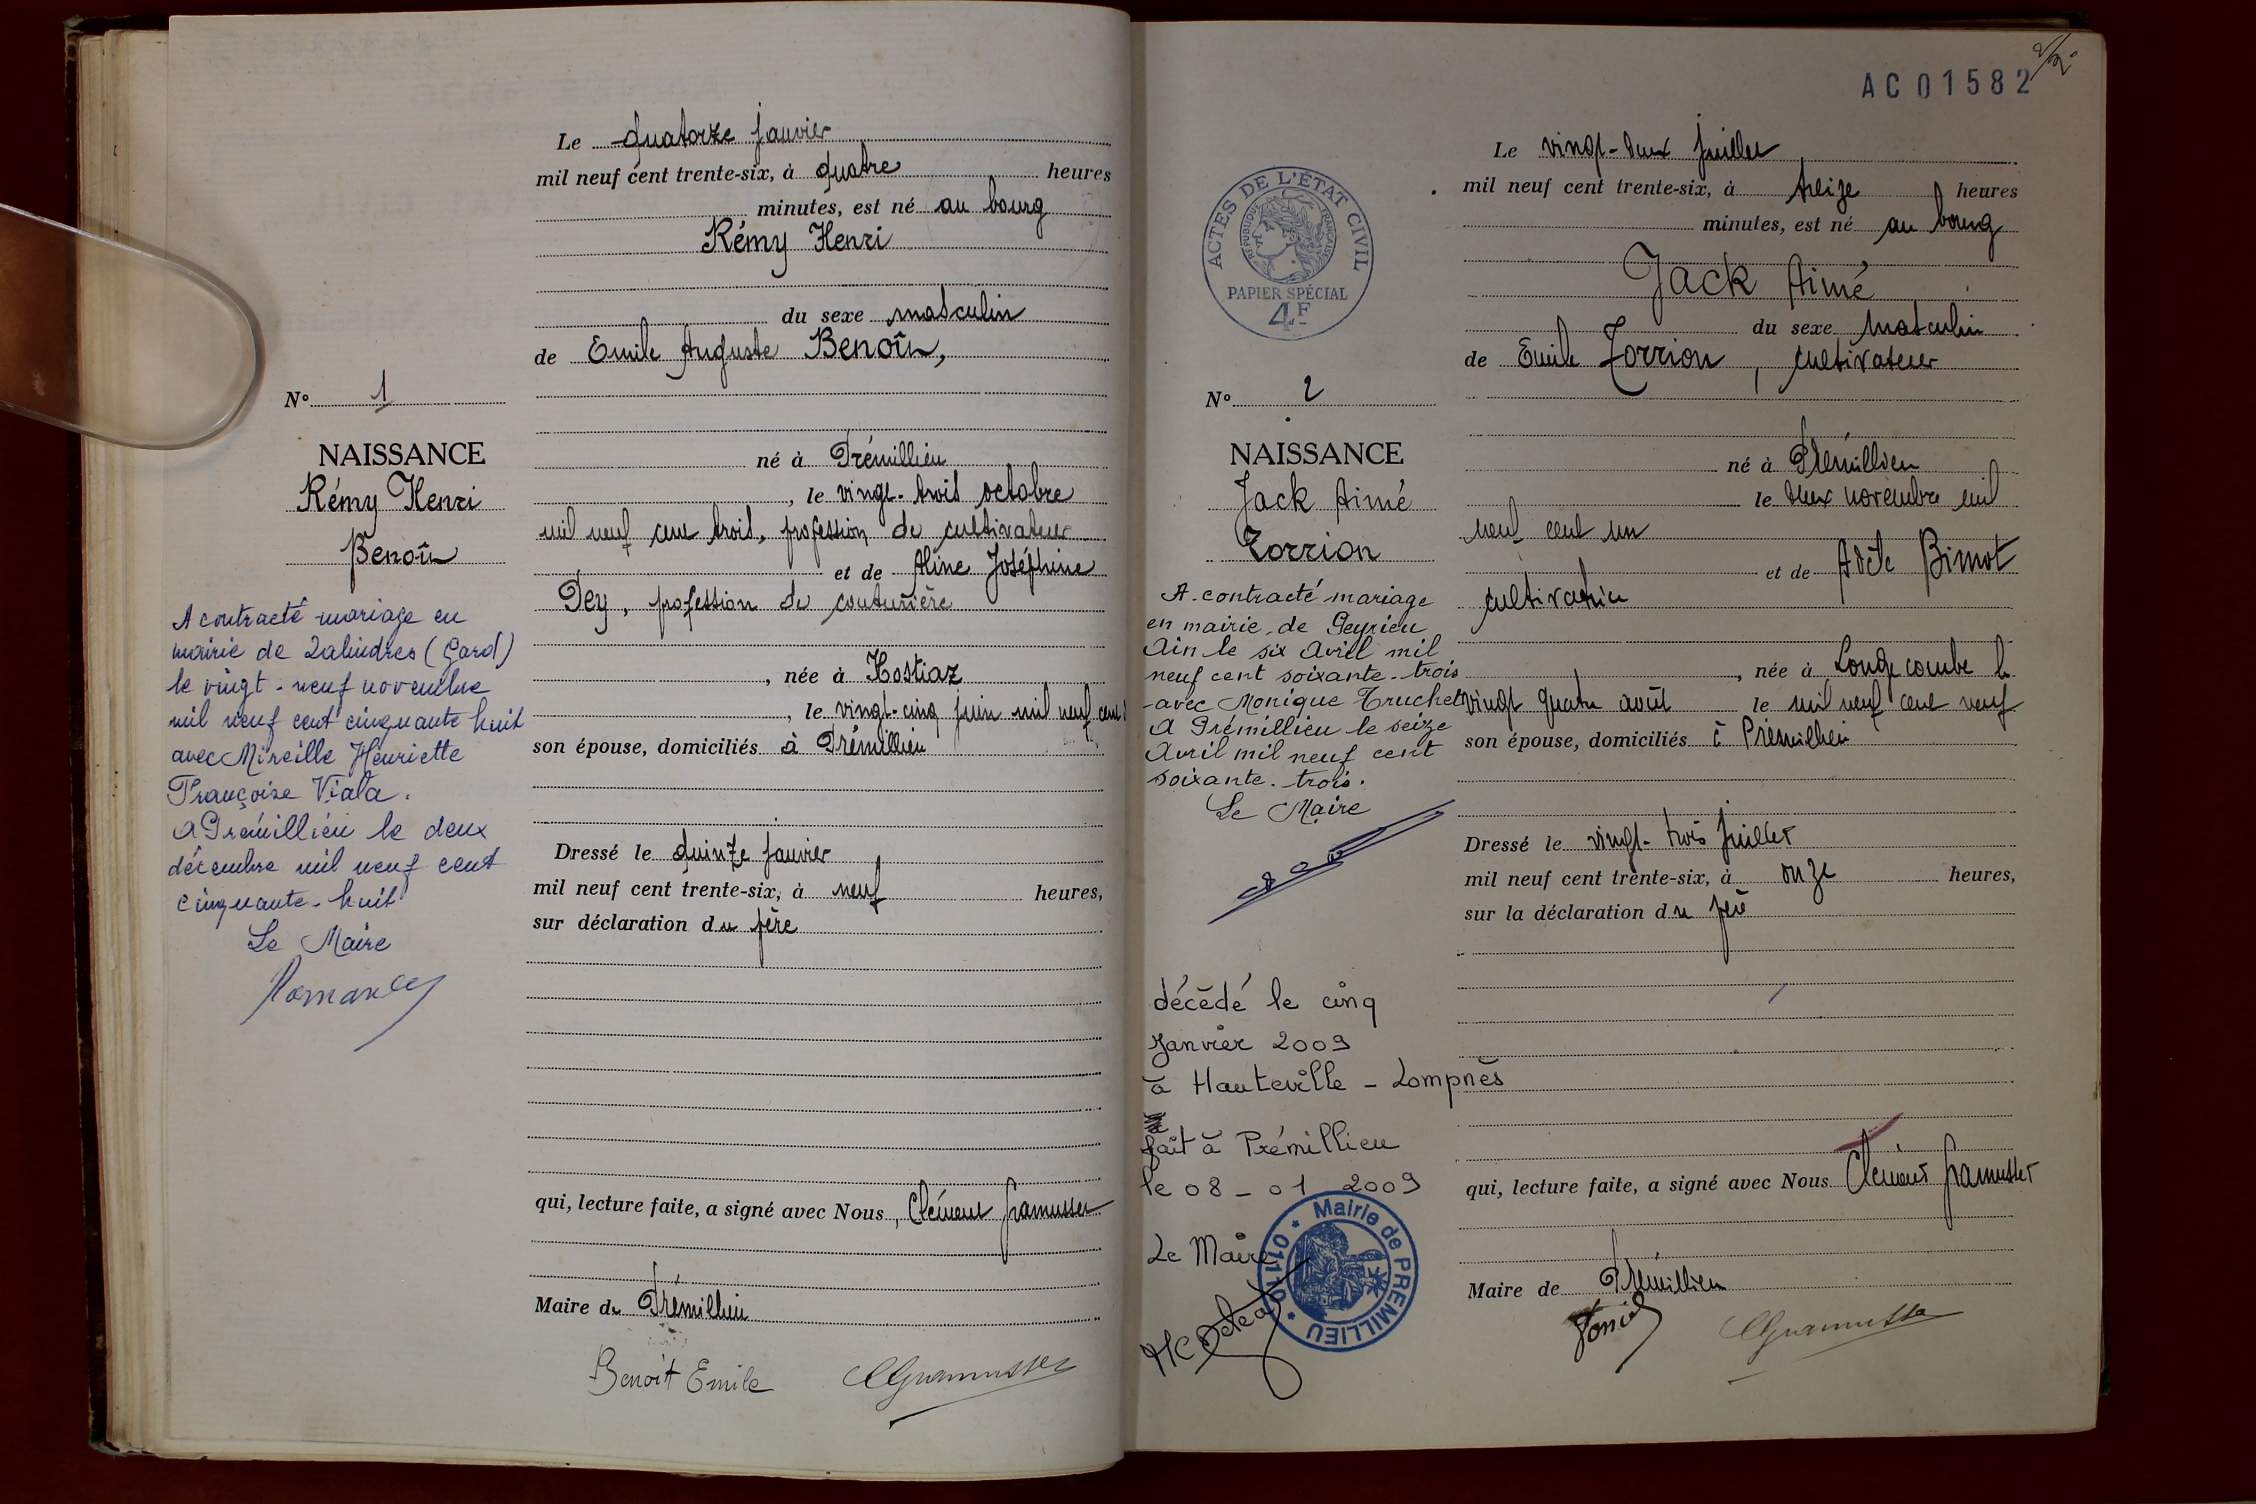 Le quatorze janvier
mil neuf cent trente-six, à quatre heures
minutes, est né au bourg
Rémy Henri
du sexe masculin
de Emile Auguste Benoît,
N° 1
NAISSANCE
Rémy Henri
Benoît
né à Prémillieu
, le vingt-trois octobre
mil neuf cent trois, profession de cultivateur
et de Aline Joséphine
Dey, profession de couturière
, née à Hostiaz
, le vingt-cinq juin mil neuf cent
son épouse, domiciliés à Prémillieu
Dressé le quinze janvier
mil neuf cent trente-six, à neuf heures,
sur déclaration du père
qui, lecture faite, a signé avec Nous, Clément Gramusset
Maire de Prémillieu
Benoit Emile CGramusset
A contracté mariage en
mairie de Salindres (Gard)
le vingt-neuf novembre
mil neuf cent cinquante huit
avec Mireille Henriette
Françoise Viala.
A Prémillieu le deux
décembre mil neuf cent
cinquante-huit
Le Maire
AC01582
ACTES DE L'ÉTAT CIVIL
RÉPUBLIQUE FRANÇAISE
PAPIER SPÉCIAL
4F
Le vingt-deux juillet
mil neuf cent trente-six, à treize heures
minutes, est né au bourg
Jack Aimé
du sexe masculin
de Emile Zorrion, cultivateur
N° 2
NAISSANCE
Jack Aimé
Zorrion
né à Prémillieu
le deux novembre mil
neuf cent un
et de Adèle Bimot
cultivatrice
, née à Longecombe le
vingt quatre août le mil neuf cent neuf
son épouse, domiciliés à Prémillieu
Dressé le vingt-trois juillet
mil neuf cent trente-six, à onze heures,
sur la déclaration du père
qui, lecture faite, a signé avec Nous Clément Gramusset
Maire de Prémillieu
CGramusset
A contracté mariage
en mairie de Peyrieu
Ain le six Avril mil
neuf cent soixante-trois
avec Monique Truchet
A Prémillieu le seize
Avril mil neuf cent
soixante-trois.
Le Maire
décédé le cinq
Janvier 2009
à Hauteville-Lompnès
fait à Prémillieu
le 08-01 2009
Le Maire
Mairie de PREMILLIEU
01110